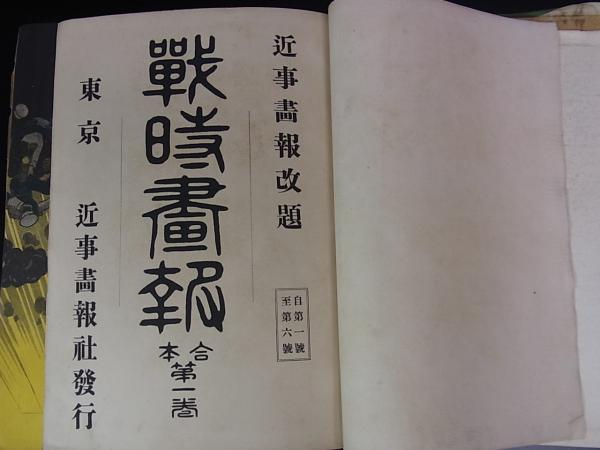 近事畵報改題
自第一號
至第六號
戰時畫報
合本
第一卷
東京
近事畵報社發行